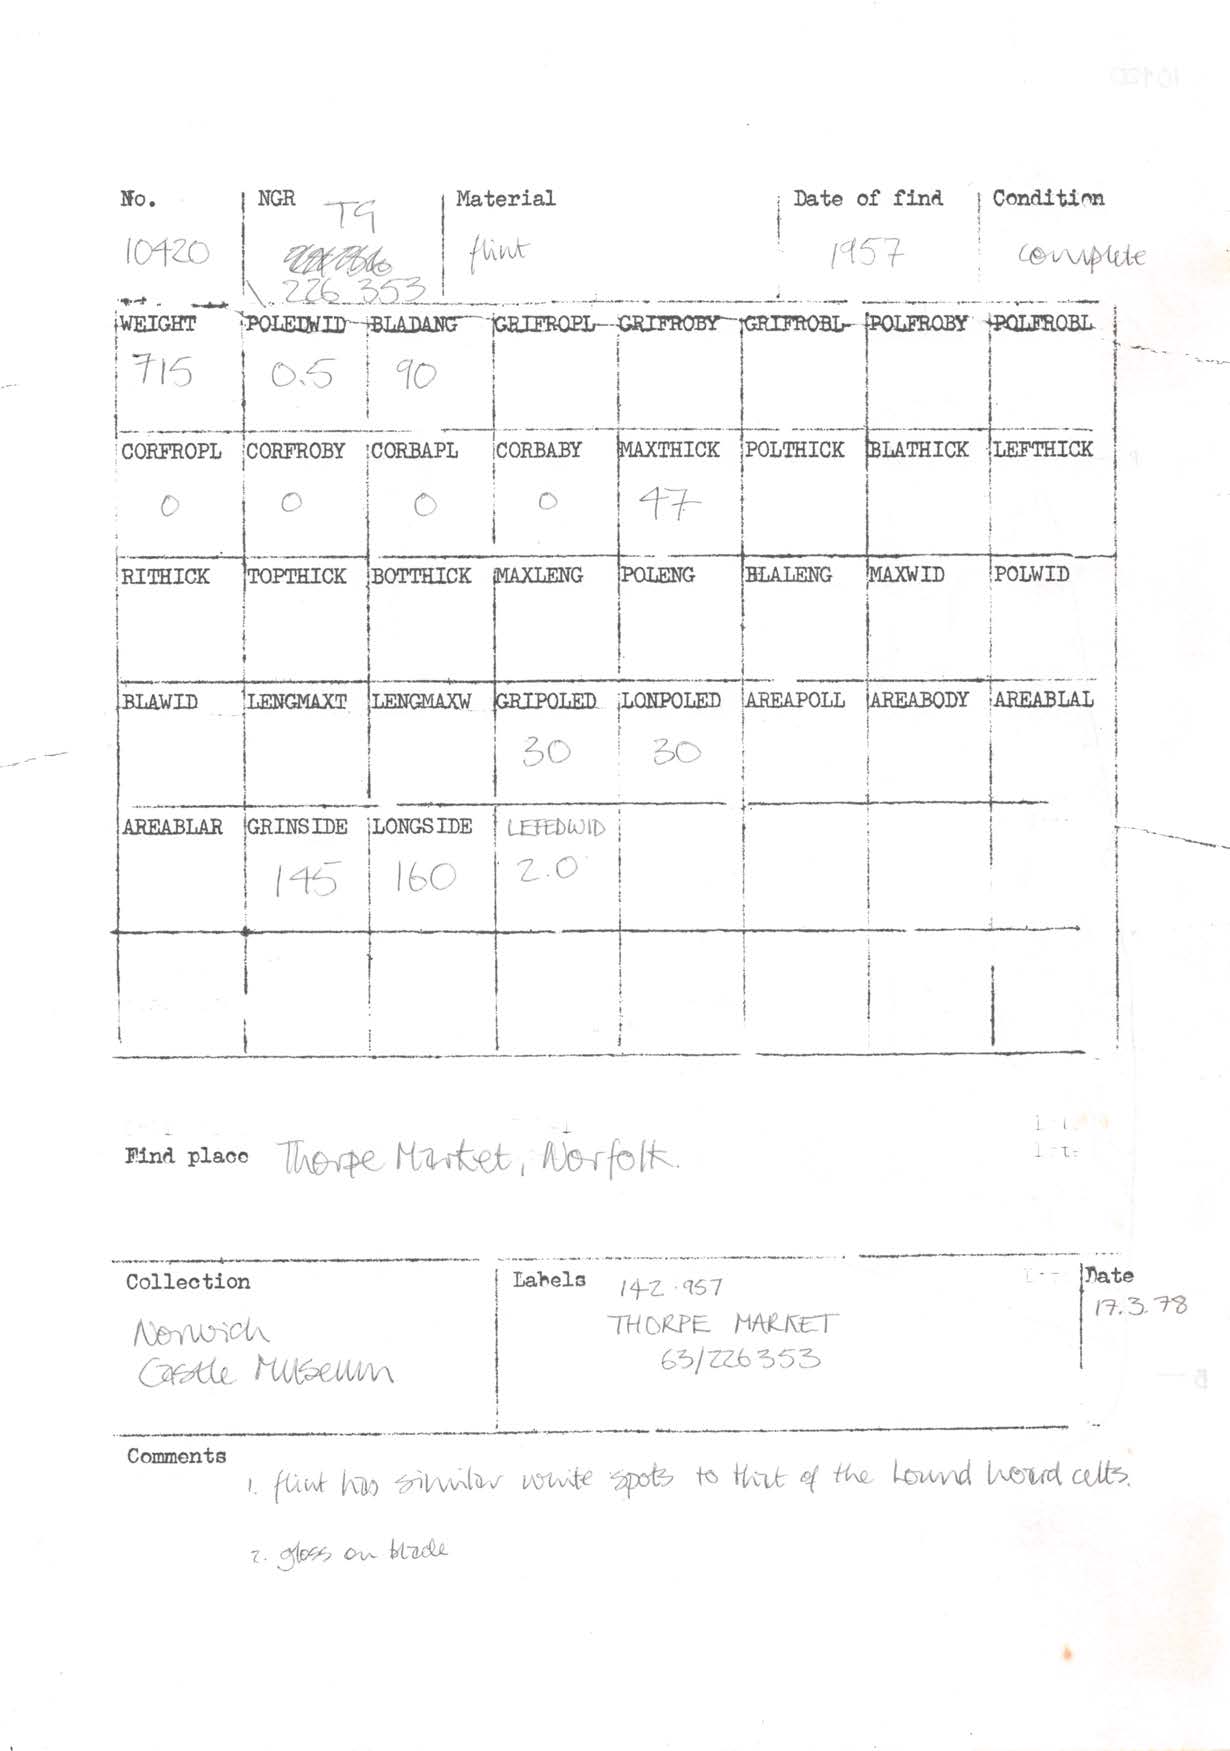 No. NGR Material Date of find Condition
TG
10420 flint 1957 complete
226 353
WEIGHT POLEDWID BLADANG GRIFROPL GRIFROBY GRIFROBL POLFROBY POLFROBL
715 0.5 90
CORFROPL CORFROBY CORBAPL CORBABY MAXTHICK POLTHICK BLATHICK LEFTHICK
0 0 0 0 47
RITHICK TOPTHICK BOTTHICK MAXLENG POLENG BLALENG MAXWID POLWID
BLAWID LENGMAXT LENGMAXW GRIPOLED LONPOLED AREAPOLL AREABODY AREABLAL
30 30
AREABLAR GRINSIDE LONGSIDE LEFEDWID
145 160 2.0
Find place Thorpe Market, Norfolk.
Collection Labels 142.957 Date
17.3.78
Norwich THORPE MARKET
Castle Museum 63/226353
Comments
1. flint has similar white spots to that of the hoard celts.
2. gloss on blade